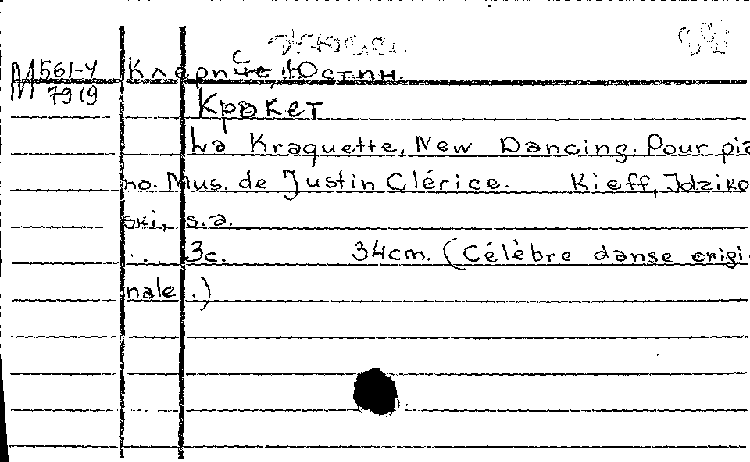 М 561-У
79(9
Клерисе, Юстин.
Крокет
La Kraquette, New Dancing. Pour pia
no. Mus. de Justin Clérice. Kieff, Idziko
ski, s.a.
3с. 34cm. (Célèbre danse erigi
nale.)